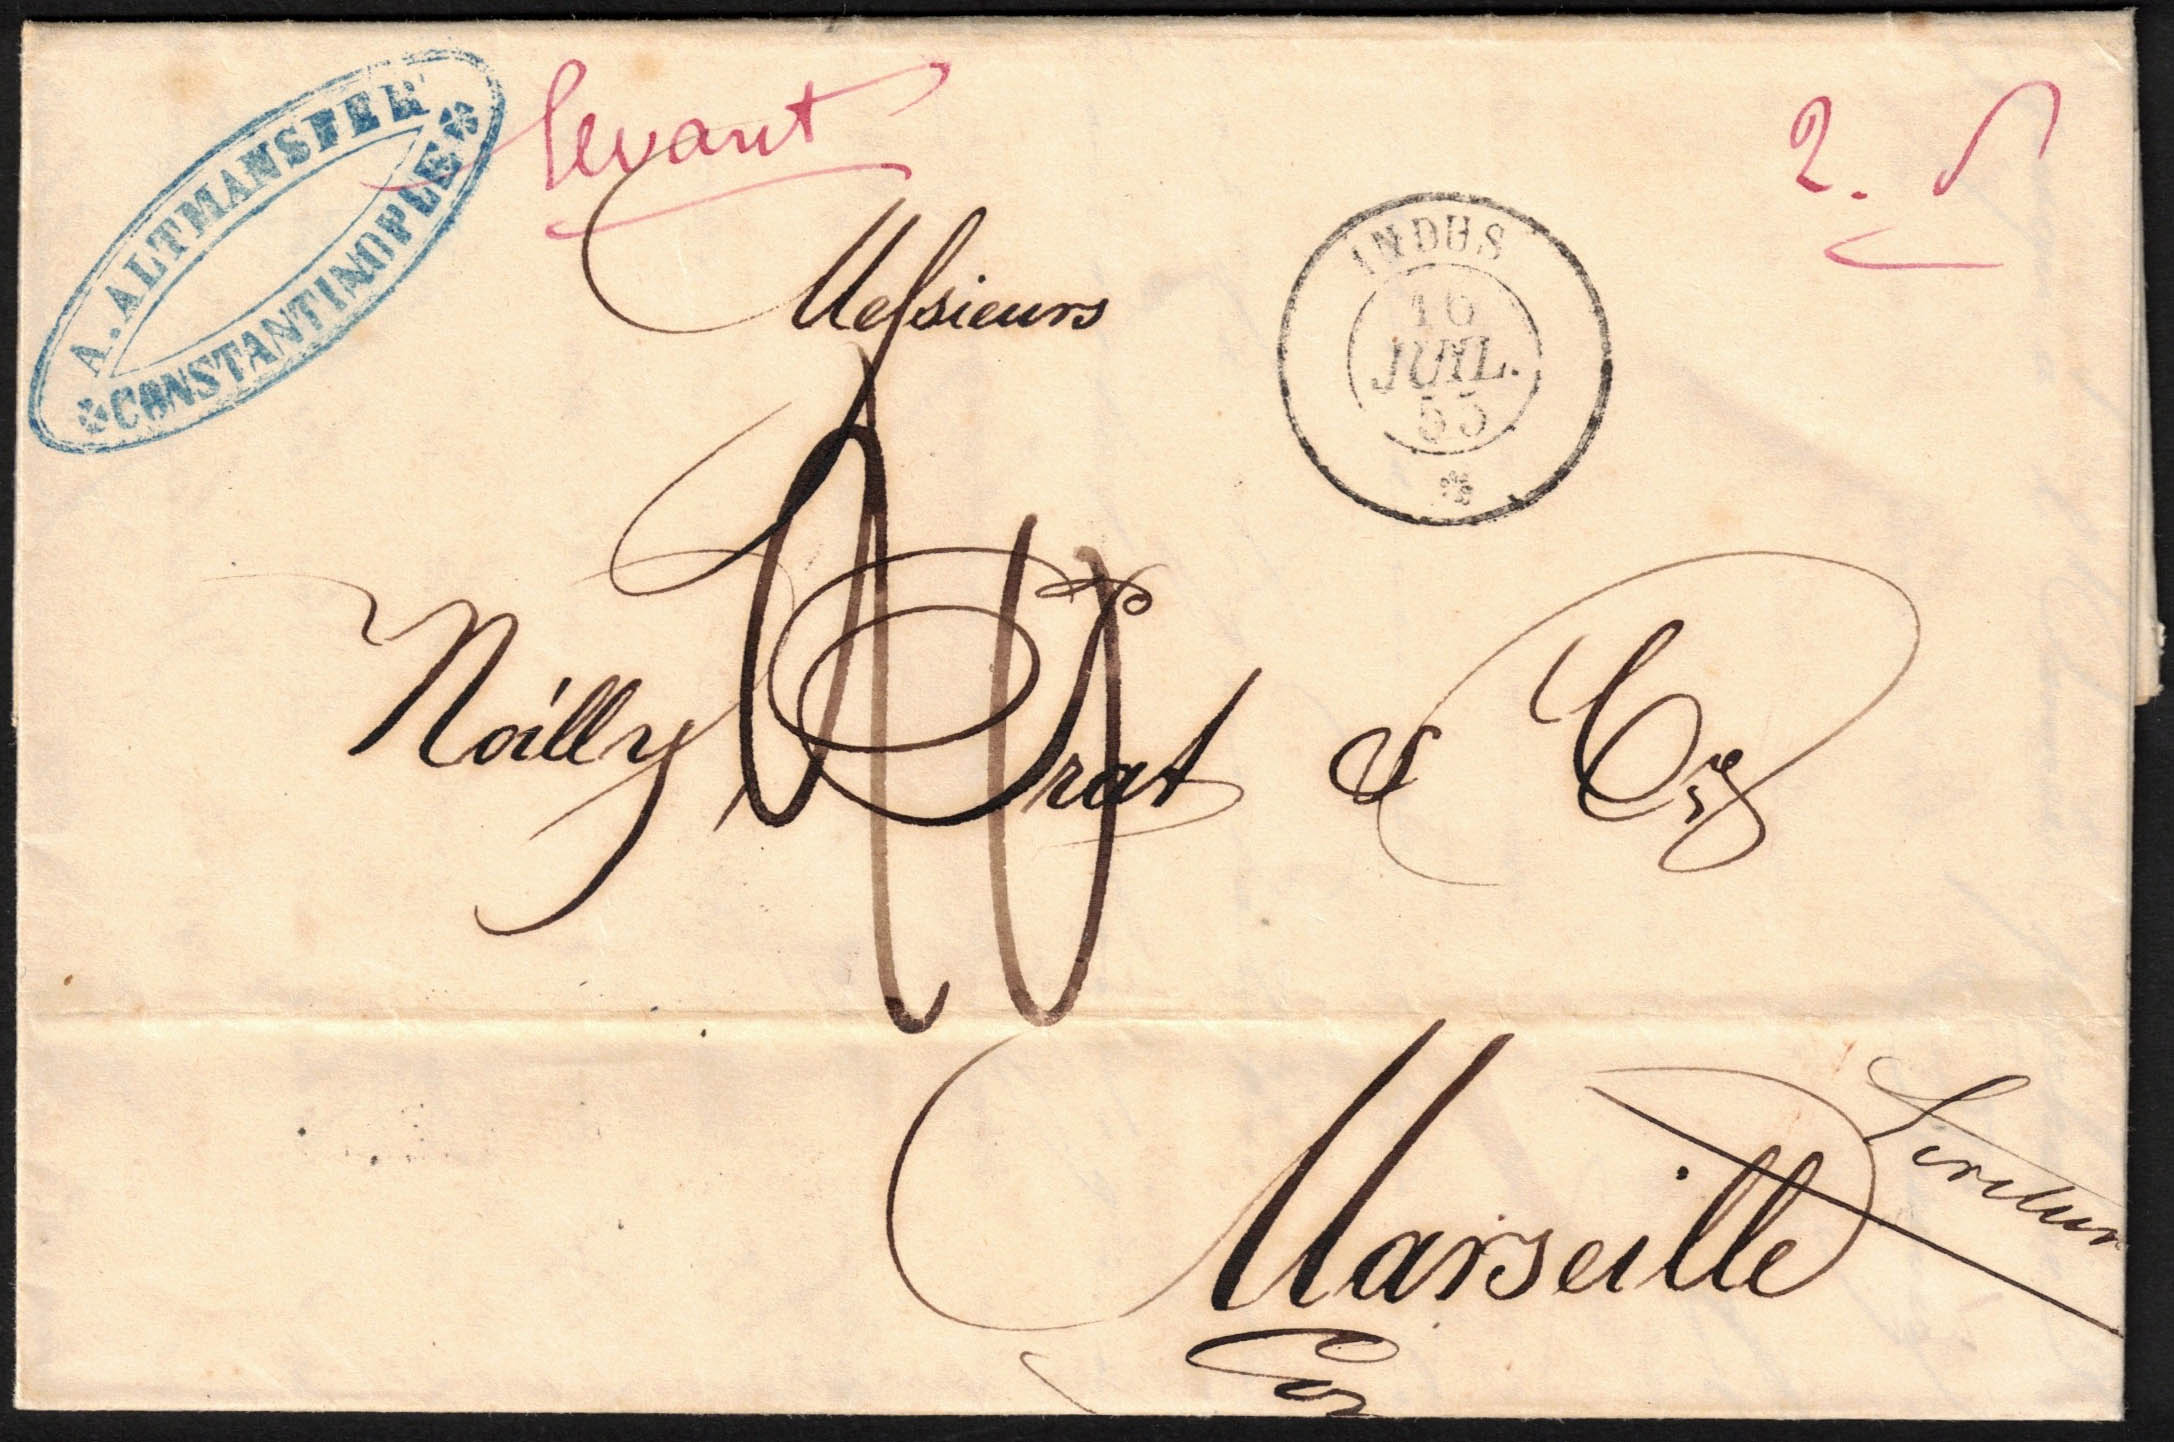 A. ALTMANSPER
CONSTANTINOPLE
levant
2.
INDUS
16
JUIL.
55
Messieurs
Noilly Prat & Cie
Marseille